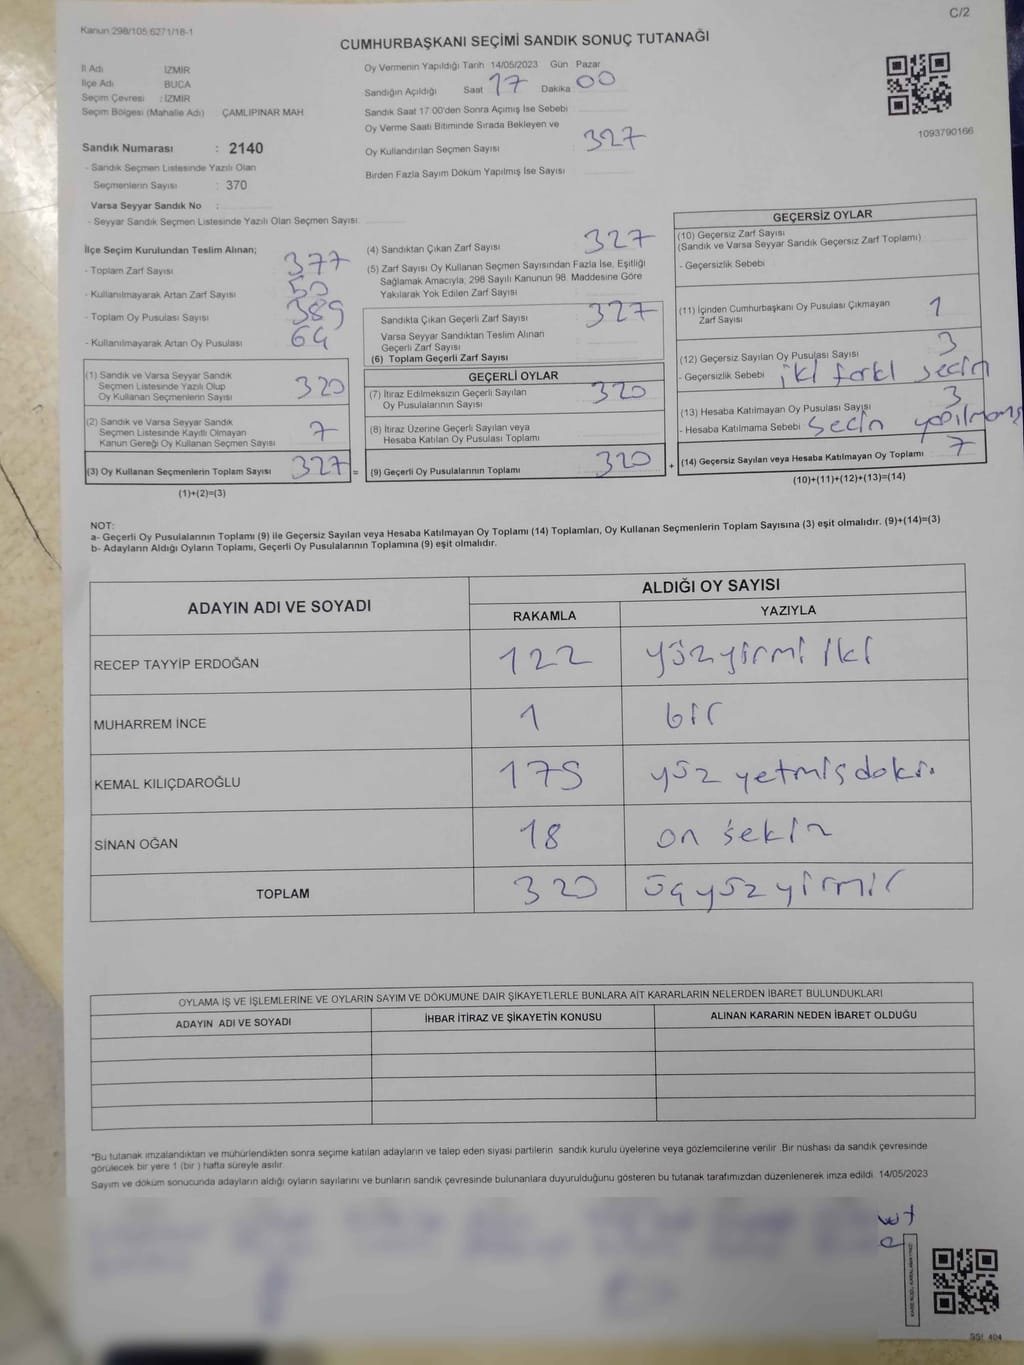 C/2
Kanun 298/105,6271/18-1
CUMHURBAŞKANI SEÇİMİ SANDIK SONUÇ TUTANAĞI
İl Adı İZMİR
İlçe Adı BUCA
Seçim Çevresi : İZMİR
Seçim Bölgesi (Mahalle Adı) ÇAMLIPINAR MAH.
Sandık Numarası : 2140
- Sandık Seçmen Listesinde Yazılı Olan
Seçmenlerin Sayısı : 370
Varsa Seyyar Sandık No :
- Seyyar Sandık Seçmen Listesinde Yazılı Olan Seçmen Sayısı:
Oy Vermenin Yapıldığı Tarih 14/05/2023 Gün Pazar
Sandığın Açıldığı Saat 17 Dakika 00
Sandık Saat 17:00'den Sonra Açımış İse Sebebi
Oy Verme Saati Bitiminde Sırada Bekleyen ve
Oy Kullandırılan Seçmen Sayısı 327
Birden Fazla Sayım Döküm Yapılmış İse Sayısı
1093790166
İlçe Seçim Kurulundan Teslim Alınan;
- Toplam Zarf Sayısı 377
- Kullanılmayarak Artan Zarf Sayısı 50
- Toplam Oy Pusulası Sayısı 389
- Kullanılmayarak Artan Oy Pusulası 64
(1) Sandık ve Varsa Seyyar Sandık
Seçmen Listesinde Yazılı Olup
Oy Kullanan Seçmenlerin Sayısı 320
(2) Sandık ve Varsa Seyyar Sandık
Seçmen Listesinde Kayıtlı Olmayan
Kanun Gereği Oy Kullanan Seçmen Sayısı 7
(3) Oy Kullanan Seçmenlerin Toplam Sayısı 327 =
(1)+(2)=(3)
(4) Sandıktan Çıkan Zarf Sayısı 327
(5) Zarf Sayısı Oy Kullanan Seçmen Sayısından Fazla İse, Eşitliği
Sağlamak Amacıyla; 298 Sayılı Kanunun 98. Maddesine Göre
Yakılarak Yok Edilen Zarf Sayısı
Sandıkta Çıkan Geçerli Zarf Sayısı 327
Varsa Seyyar Sandıktan Teslim Alınan
Geçerli Zarf Sayısı
(6) Toplam Geçerli Zarf Sayısı
GEÇERLİ OYLAR
(7) İtiraz Edilmeksizin Geçerli Sayılan
Oy Pusulalarının Sayısı 320
(8) İtiraz Üzerine Geçerli Sayılan veya
Hesaba Katılan Oy Pusulası Toplamı
(9) Geçerli Oy Pusulalarının Toplamı 320 +
GEÇERSİZ OYLAR
(10) Geçersiz Zarf Sayısı
(Sandık ve Varsa Seyyar Sandık Geçersiz Zarf Toplamı)
- Geçersizlik Sebebi
(11) İçinden Cumhurbaşkanı Oy Pusulası Çıkmayan
Zarf Sayısı 1
(12) Geçersiz Sayılan Oy Pusulası Sayısı 3
- Geçersizlik Sebebi iki farkl secim
(13) Hesaba Katılmayan Oy Pusulası Sayısı 3
- Hesaba Katılmama Sebebi Secim yapılmamış
(14) Geçersiz Sayılan veya Hesaba Katılmayan Oy Toplamı 7
(10)+(11)+(12)+(13)=(14)
NOT:
a- Geçerli Oy Pusulalarının Toplamı (9) ile Geçersiz Sayılan veya Hesaba Katılmayan Oy Toplamı (14) Toplamları, Oy Kullanan Seçmenlerin Toplam Sayısına (3) eşit olmalıdır. (9)+(14)=(3)
b- Adayların Aldığı Oyların Toplamı, Geçerli Oy Pusulalarının Toplamına (9) eşit olmalıdır.
ADAYIN ADI VE SOYADI ALDIĞI OY SAYISI
RAKAMLA YAZIYLA
RECEP TAYYİP ERDOĞAN 122 yüzyirmi iki
MUHARREM İNCE 1 bir
KEMAL KILIÇDAROĞLU 179 yüz yetmiş
SİNAN OĞAN 18 on sekiz
TOPLAM 320 üçyüzyirmi
OYLAMA İŞ VE İŞLEMLERİNE VE OYLARIN SAYIM VE DÖKÜMÜNE DAİR ŞİKAYETLERLE BUNLARA AİT KARARLARIN NELERDEN İBARET BULUNDUKLARI
ADAYIN ADI VE SOYADI İHBAR İTİRAZ VE ŞİKAYETİN KONUSU ALINAN KARARIN NEDEN İBARET OLDUĞU
*Bu tutanak imzalandıktan ve mühürlendikten sonra seçime katılan adayların ve talep eden siyasi partilerin sandık kurulu üyelerine veya gözlemcilerine verilir. Bir nüshası da sandık çevresinde
görülecek bir yere 1 (bir ) hafta süreyle asılır.
Sayım ve döküm sonucunda adayların aldığı oyların sayılarını ve bunların sandık çevresinde bulunanlara duyurulduğunu gösteren bu tutanak tarafımızdan düzenlenerek imza edildi. 14/05/2023